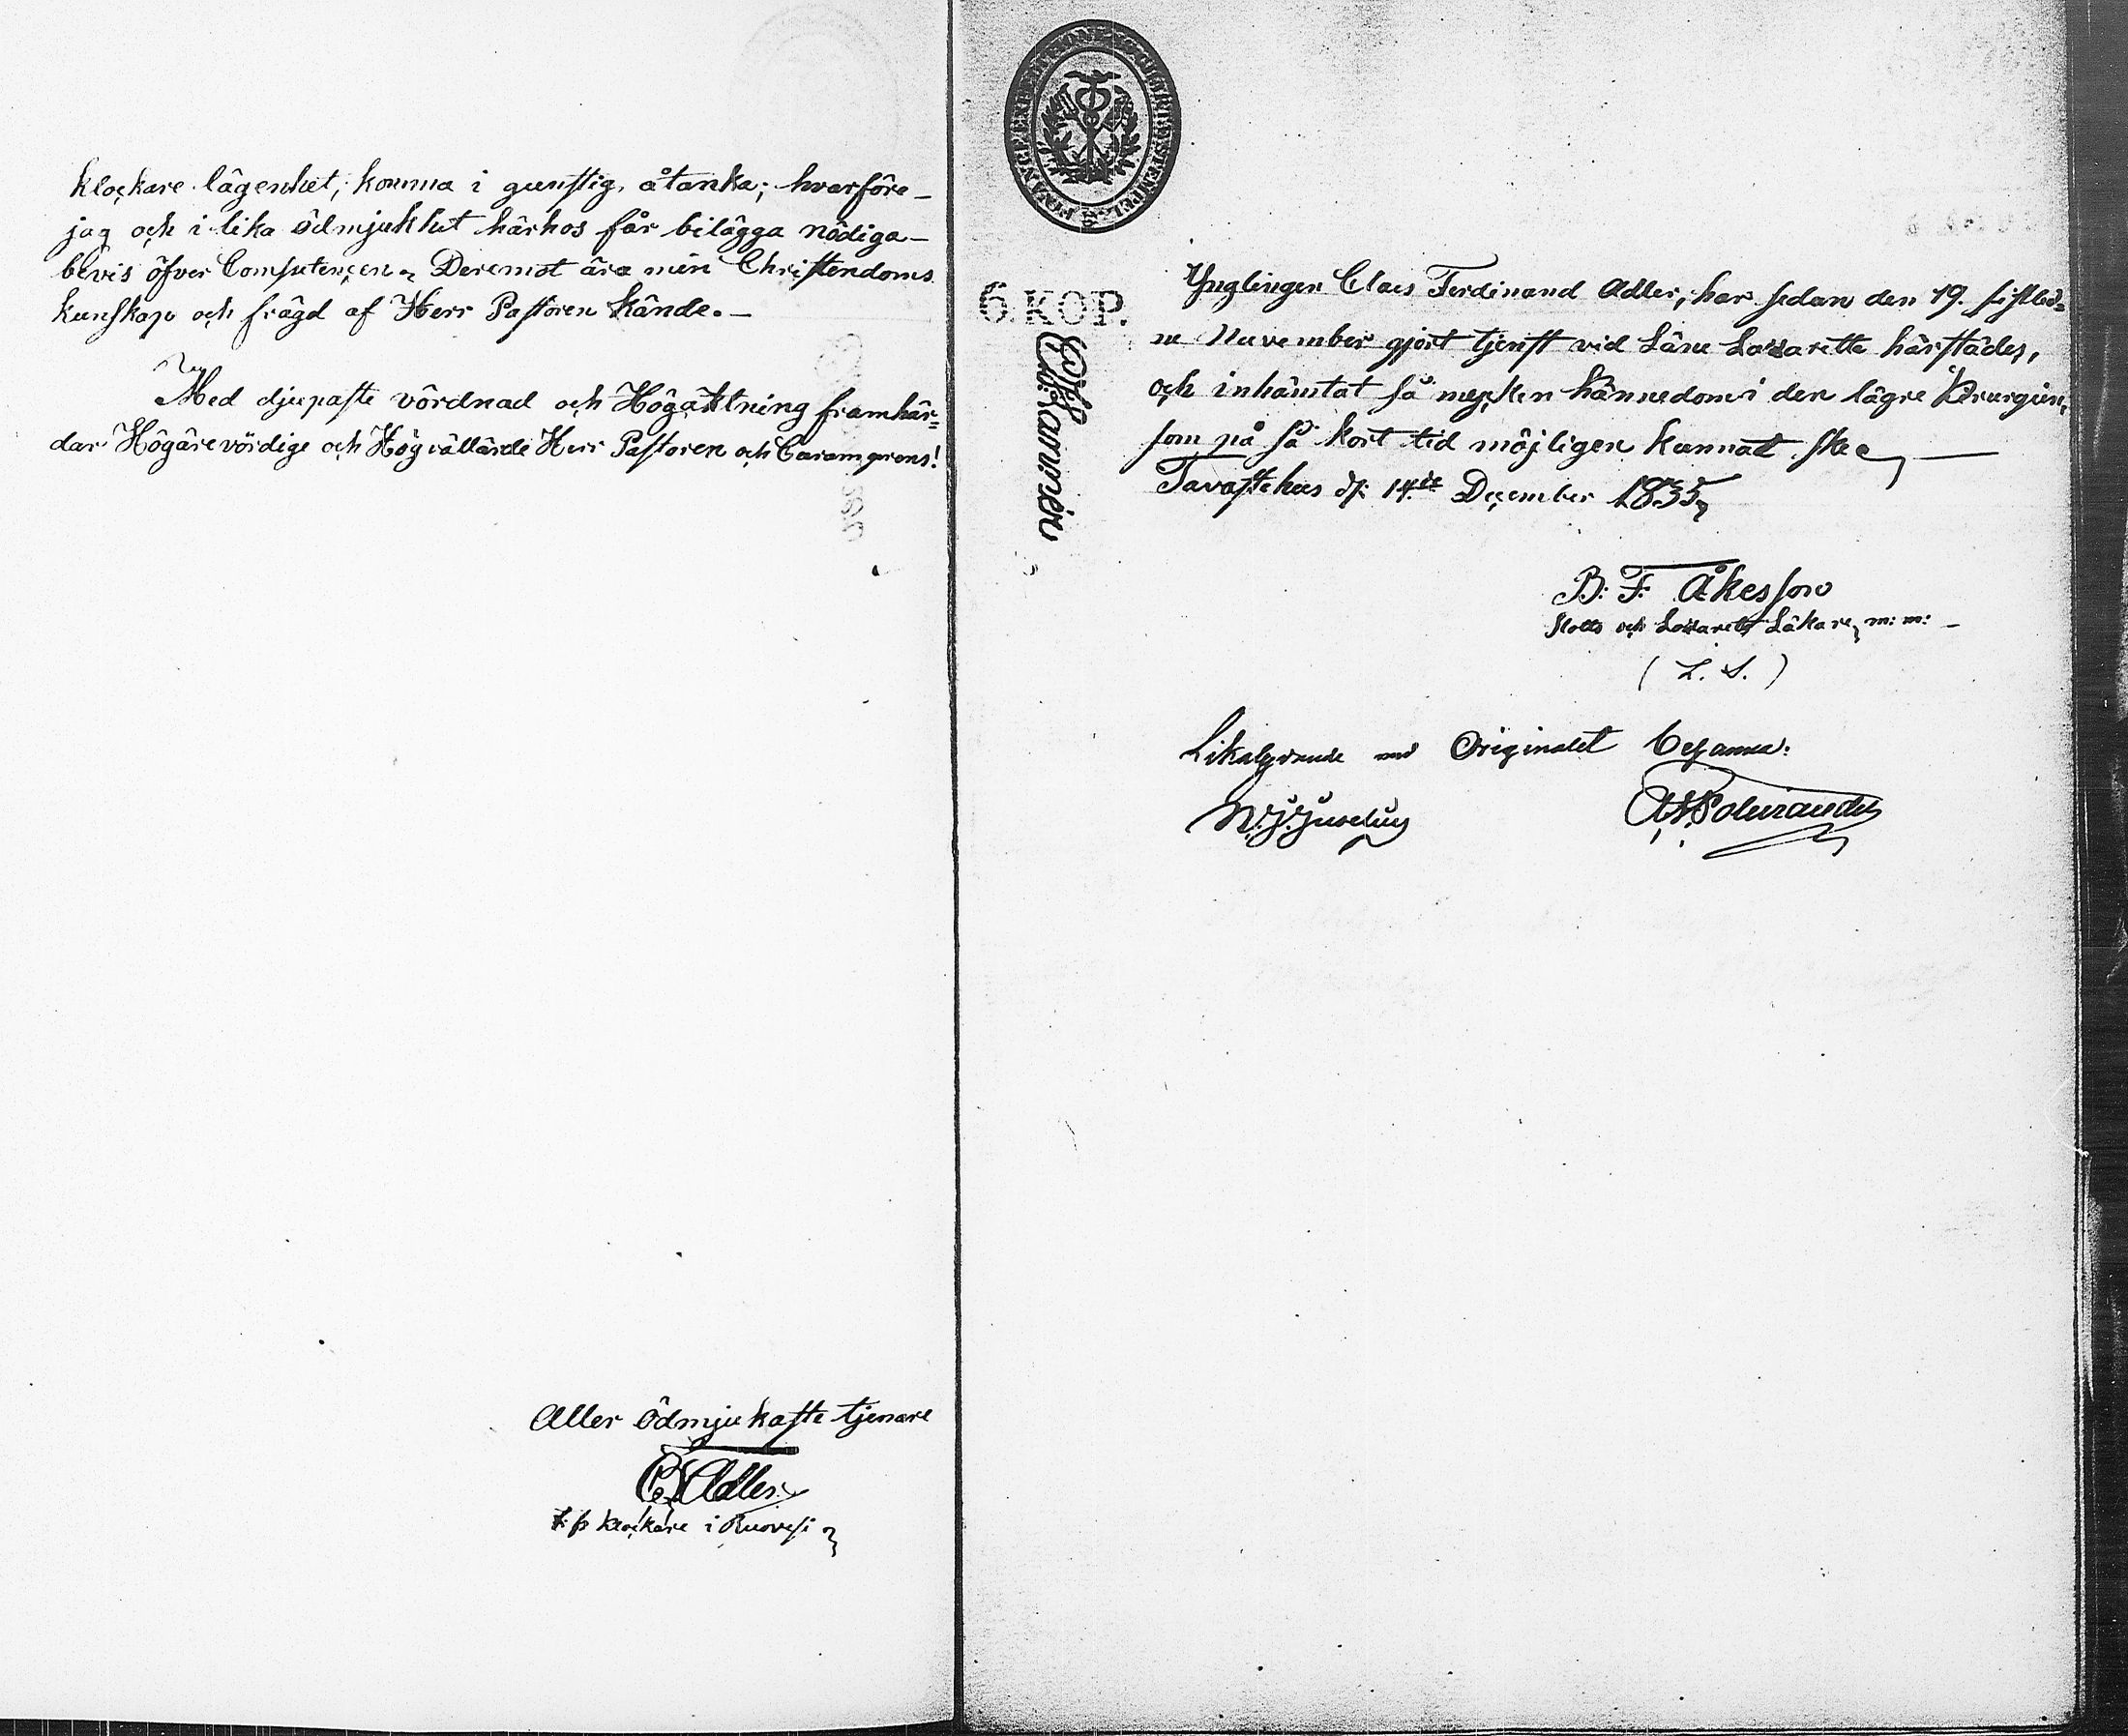 klockare lägenhet, komma i gunstig, åtanka; hvarföre
jag och i lika ödmjukhet härhos får bilägga nödiga
bevis öfver Competencen. Deremot äro min Christendoms
kunskap och frägd af Herr Pastoren kände.
Med djupaste vördnad och Högaktning framhär=
dar Högärevördige och Högvällärde Herr Pastoren och
Aller ödmjukaste tjenare
CF Adler
klockare i Ruovesi
6. KOP.
Ynglingen Claes Ferdinand Adler, har sedan den 19. sistled=
ne November gjort tjenst vid Läns Lazarette härstädes,
och inhämtat så mycken kännedom i den lägre Kirurgien,
som på så kort tid möjligen kunnat ske
Tavastehus d: 14de December 1835,
B: F: Åkesson
Slotts och Lazaretts Läkare, m: m:
( L. S. )
Likalydande med Originalet